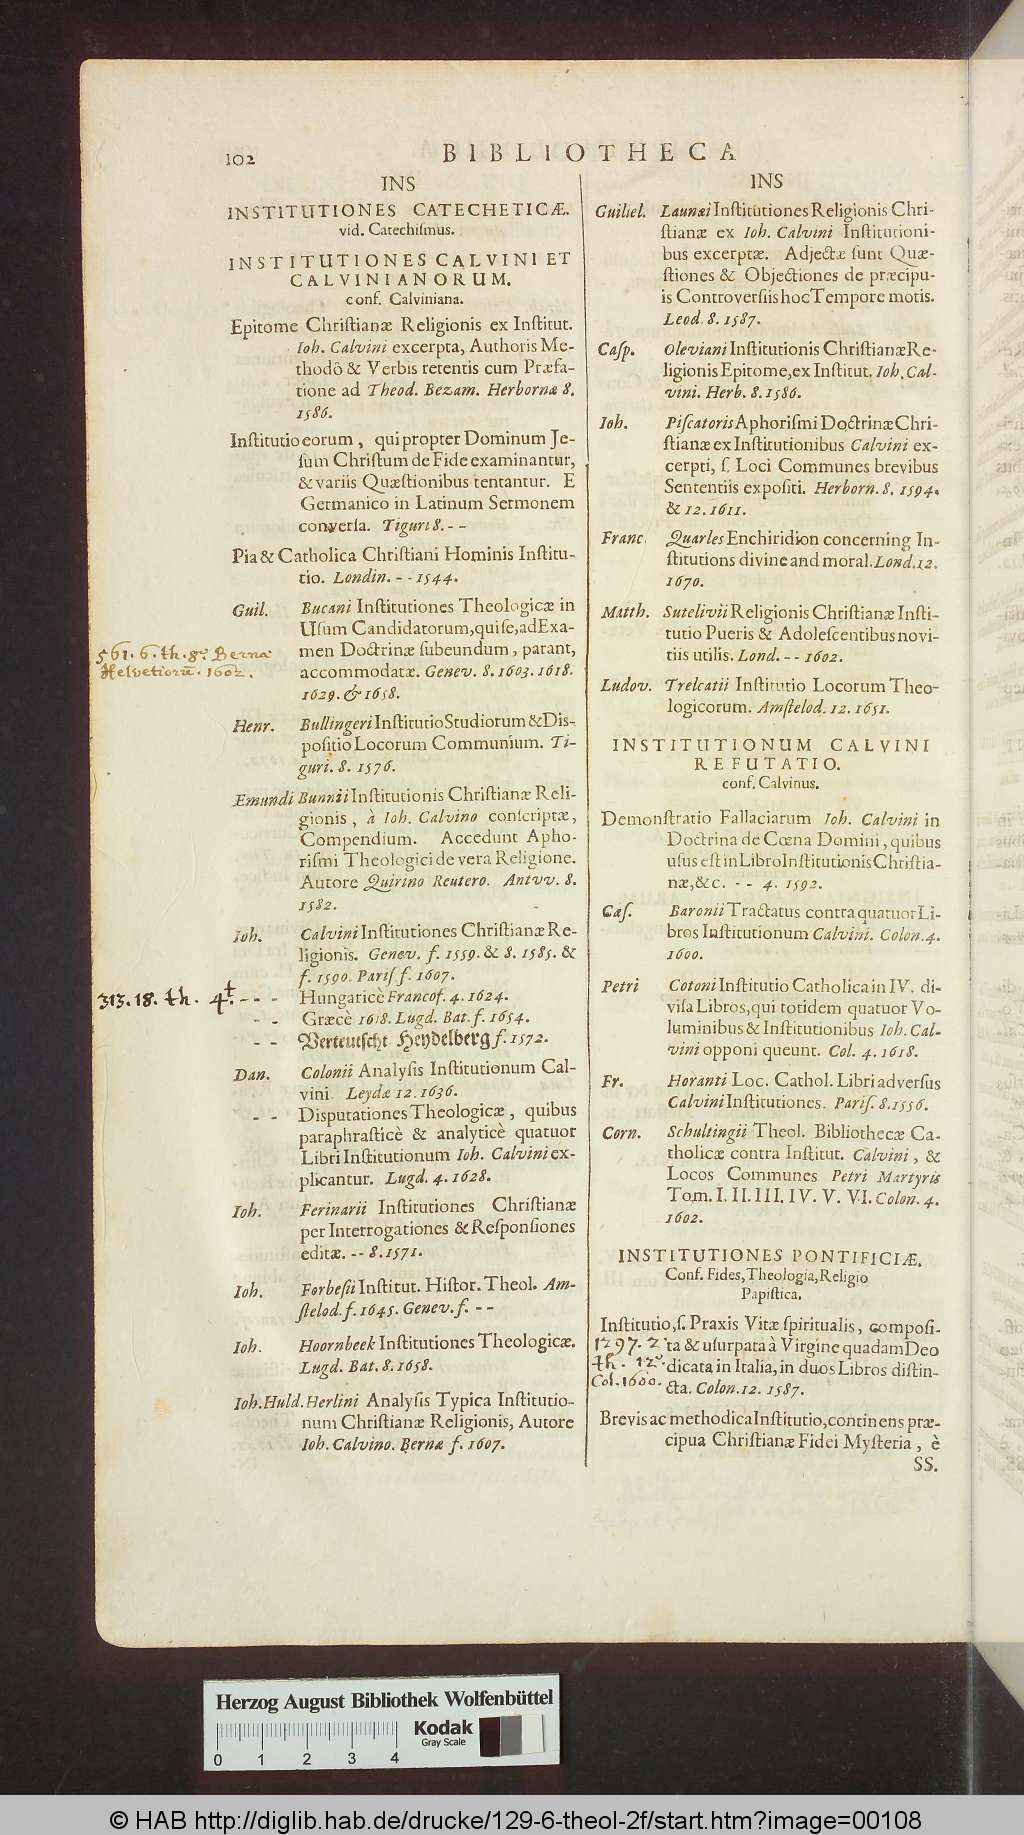 102
BIBLIOTHECA
INS
INSTITUTIONES CATECHETICÆ.
vid. Catechiſmus.
INSTITUTIONES CALVINI ET
CALVINIANORUM.
conf. Calviniana.
Epitome Chriſtianæ Religionis ex Inſtitut.
Ioh. Calvini excerpta, Authoris Me-
thodô & Verbis retentis cum Præfa-
tione ad Theod. Bezam. Herbornæ 8.
1586.
Inſtitutio eorum, qui propter Dominum Je-
ſum Chriſtum de Fide examinantur,
& variis Quæſtionibus tentantur. E
Germanico in Latinum Sermonem
converſa. Tiguri 8. - -
Pia & Catholica Chriſtiani Hominis Inſtitu-
tio. Londin. - - 1544.
Guil. Bucani Inſtitutiones Theologicæ in
Uſum Candidatorum, qui ſe, ad Exa-
561. 6. th. 8º Bernæ men Doctrinæ ſubeundum, parant,
Helvetiorũ. 1602. accommodatæ. Genev. 8. 1603. 1618.
1629. & 1658.
Henr. Bullingeri Inſtitutio Studiorum & Diſ-
poſitio Locorum Communium. Ti-
guri. 8. 1576.
Emundi Bunnii Inſtitutionis Chriſtianæ Reli-
gionis, à Ioh. Calvino conſcriptæ,
Compendium. Accedunt Apho-
riſmi Theologici de vera Religione.
Autore Quirino Reutero. Antvv. 8.
1582.
Ioh. Calvini Inſtitutiones Chriſtianæ Re-
ligionis. Genev. f. 1559. & 8. 1585. &
f. 1590. Pariſ f. 1607.
313. 18. th. 4t. - - - Hungaricè Francof. 4. 1624.
- - Græcè 1618. Lugd. Bat. f. 1654.
- - Verteutſcht Heydelberg f. 1572.
Dan. Colonii Analyſis Inſtitutionum Cal-
vini. Leydæ 12. 1636.
- - Disputationes Theologicæ, quibus
paraphraſticè & analyticè quatuor
Libri Inſtitutionum Ioh. Calvini ex-
plicantur. Lugd. 4. 1628.
Ioh. Ferinarii Inſtitutiones Chriſtianæ
per Interrogationes & Reſponſiones
editæ. - - 8. 1571.
Ioh. Forbeſii Inſtitut. Hiſtor. Theol. Am-
ſtelod. f. 1645. Genev. f. - -
Ioh. Hoornbeek Inſtitutiones Theologicæ.
Lugd. Bat. 8. 1658.
Ioh. Huld. Herlini Analyſis Typica Inſtitutio-
num Chriſtianæ Religionis, Autore
Ioh. Calvino. Bernæ f. 1607.
INS
Guiliel. Launæi Inſtitutiones Religionis Chri-
ſtianæ ex Ioh. Calvini Inſtitutioni-
bus excerptæ. Adjectæ ſunt Quæ-
ſtiones & Objectiones de præcipu-
is Controverſiis hoc Tempore motis.
Leod. 8. 1587.
Caſp. Oleviani Inſtitutionis Chriſtianæ Re-
ligionis Epitome, ex Inſtitut. Ioh. Cal-
vini. Herb. 8. 1586.
Ioh. Piſcatoris Aphoriſmi Doctrinæ Chri-
ſtianæ ex Inſtitutionibus Calvini ex-
cerpti, ſ. Loci Communes brevibus
Sententiis expoſiti. Herborn. 8. 1594.
& 12. 1611.
Franc. Quarles Enchiridion concerning In-
ſtitutions divine and moral. Lond. 12.
1670.
Matth. Sutelivii Religionis Chriſtianæ Inſti-
tutio Pueris & Adoleſcentibus novi-
tiis utilis. Lond. - - 1602.
Ludov. Trelcatii Inſtitutio Locorum Theo-
logicorum. Amſtelod. 12. 1651.
INSTITUTIONUM CALVINI
REFUTATIO.
conf. Calvinus.
Demonſtratio Fallaciarum Ioh. Calvini in
Doctrina de Cœna Domini, quibus
uſus eſt in Libro Inſtitutionis Chriſtia-
næ, &c. - - 4. 1592.
Cæſ. Baronii Tractatus contra quatuor Li-
bros Inſtitutionum Calvini. Colon. 4.
1600.
Petri Cotoni Inſtitutio Catholica in IV. di-
viſa Libros, qui totidem quatuor Vo-
luminibus & Inſtitutionibus Ioh. Cal-
vini opponi queunt. Col. 4. 1618.
Fr. Horanti Loc. Cathol. Libri adverſus
Calvini Inſtitutiones. Pariſ. 8. 1556.
Corn. Schultingii Theol. Bibliothecæ Ca-
tholicæ contra Inſtitut. Calvini, &
Locos Communes Petri Martyris
Tom. I. II. III. IV. V. VI. Colon. 4.
1602.
INSTITUTIONES PONTIFICIÆ.
Conf. Fides, Theologia, Religio
Papiſtica.
Inſtitutio, ſ. Praxis Vitæ ſpiritualis, compoſi-
1297. 2. ta & uſurpata à Virgine quadam Deo
th. 12º. dicata in Italia, in duos Libros diſtin-
Col. 1600. cta. Colon. 12. 1587.
Brevis ac methodica Inſtitutio, continens præ-
cipua Chriſtianæ Fidei Myſteria, è
SS.
Herzog August Bibliothek Wolfenbüttel
Kodak
Gray Scale
0 1 2 3 4
© HAB http://diglib.hab.de/drucke/129-6-theol-2f/start.htm?image=00108